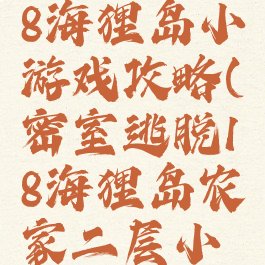 8海狸岛小
游戏攻略(
密室逃脱1
8海狸岛农
家二层小